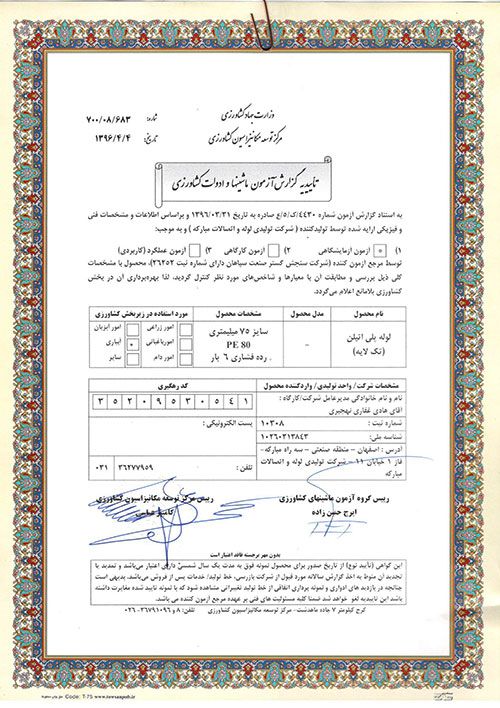 وزارت جهاد کشاورزی
شماره: ۷۰۰/۰۸/۶۸۳
مرکز توسعه مکانیزاسیون کشاورزی
تاریخ: ۱۳۹۶/۴/۴
تاییدیه گزارش آزمون ماشینها و ادوات کشاورزی
به استناد گزارش آزمون شماره ۴۴۳۰/ک/۵/ع صادره به تاریخ ۱۳۹۶/۰۳/۳۱ و براساس اطلاعات و مشخصات فنی
و فیزیکی ارایه شده توسط تولیدکننده ( شرکت تولیدی لوله و اتصالات مبارکه ) و به موجب:
۱) آزمون آزمایشگاهی * ۲) آزمون کارگاهی ۳) آزمون عملکرد (کاربردی)
توسط مرجع آزمون کننده (شرکت سنجش گستر صنعت سپاهان دارای شماره ثبت ۲۶۲۵۲)، محصول با مشخصات
کلی ذیل بررسی و مطابقت آن با معیارها و شاخص‌های مورد نظر کنترل گردید، لذا بهره‌برداری آن در بخش
کشاورزی بلامانع اعلام می‌گردد.
نام محصول مدل محصول مشخصات محصول مورد استفاده در زیربخش کشاورزی
لوله پلی اتیلن
(تک لایه)
-
سایز ۷۵ میلیمتری
PE 80
رده فشاری ۶ بار
امور زراعی امور آبزیان
امور باغبانی آبیاری *
امور دام سایر
مشخصات شرکت/ واحد تولیدی/ واردکننده محصول کد رهگیری
نام و نام خانوادگی مدیرعامل شرکت/کارگاه :
آقای هادی غفاری نهجیری
۳ ۵ ۲ ۰ ۹ ۵ ۳ ۰ ۵ ۴ ۱
شماره ثبت : ۱۰۳۰۸
پست الکترونیکی:
شناسه ملی: ۱۰۲۶۰۲۱۳۸۴۳
آدرس : اصفهان - منطقه صنعتی - سه راه مبارکه-
فاز ۱ خیابان ۱۱ - شرکت تولیدی لوله و اتصالات
مبارکه
تلفن : ۳۶۲۷۷۹۵۹ ۰۳۱
رییس گروه آزمون ماشینهای کشاورزی
ایرج حسن زاده
رییس مرکز توسعه مکانیزاسیون کشاورزی
کامبیز عباسی
بدون مهر برجسته فاقد اعتبار است
این گواهی (تأیید نوع) از تاریخ صدور برای محصول نمونه فوق به مدت یک سال شمسی دارای اعتبار می‌باشد و تمدید یا
تجدید آن منوط به اخذ گزارش سالانه مورد قبول از شرکت بازرسی، خط تولید/ خدمات پس از فروش می‌باشد. بدیهی است
چنانچه در بازدید های ادواری و نمونه برداری اتفاقی از خط تولید تغییراتی مشاهده شود که با نمونه تایید شده مغایرت داشته
باشد این تاییدیه لغو خواهد شد ضمنا کلیه مسئولیت های فنی بر عهده مرجع آزمون کننده می باشد.
کرج کیلومتر ۷ جاده ماهدشت- مرکز توسعه مکانیزاسیون کشاورزی تلفن: ۸ و ۳۶۷۹۱۰۹۶-۰۲۶
Code: T-75 www.tawsanpub.ir